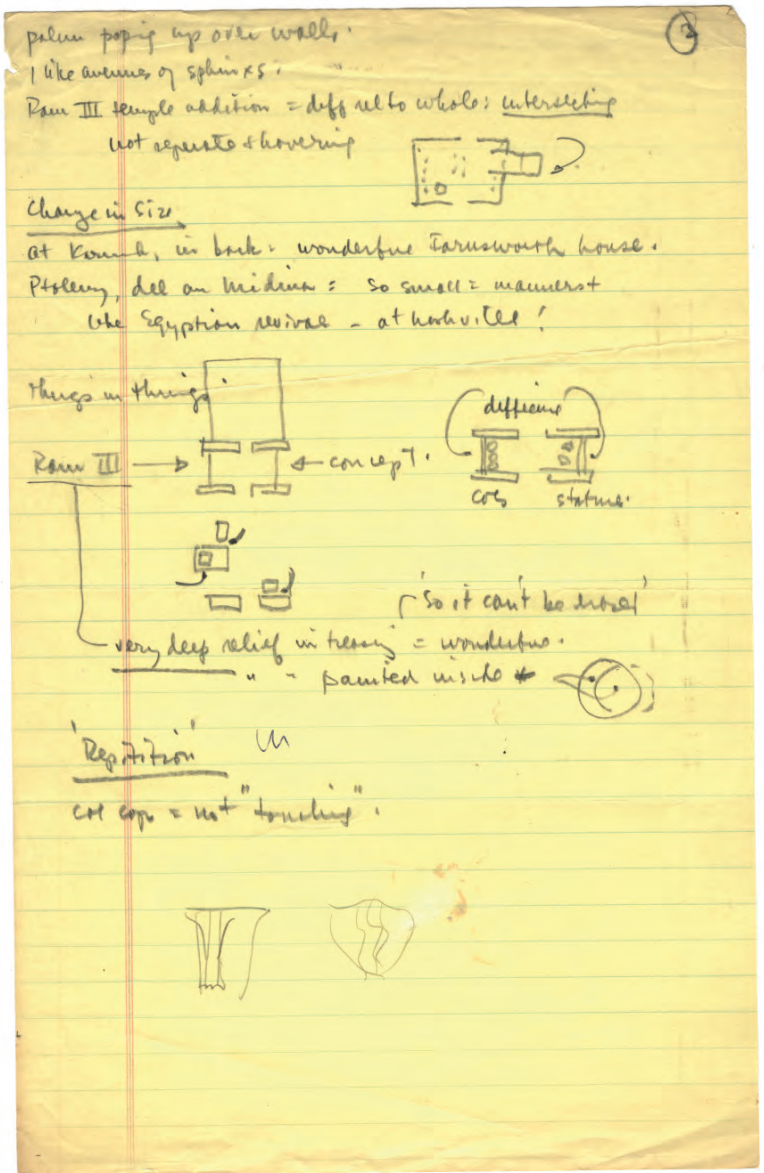 ②
palm poping up over walls.
I like avenues of sphinxs.
Ram III temple addition = diff rel to whole: intersecting
not separate & hovering
Change in Size
at in back = wonderful Farnsworth house.
Ptolemy, del an Medina = so small = mannerst
like Egyptian revival - at Nashville!
things in things'
difference
Ram III → ← concept.
cols statues.
'So it can't be erased'
very deep relief in = wonderful.
" " painted inside
'Repitition'
col caps = not "touching".